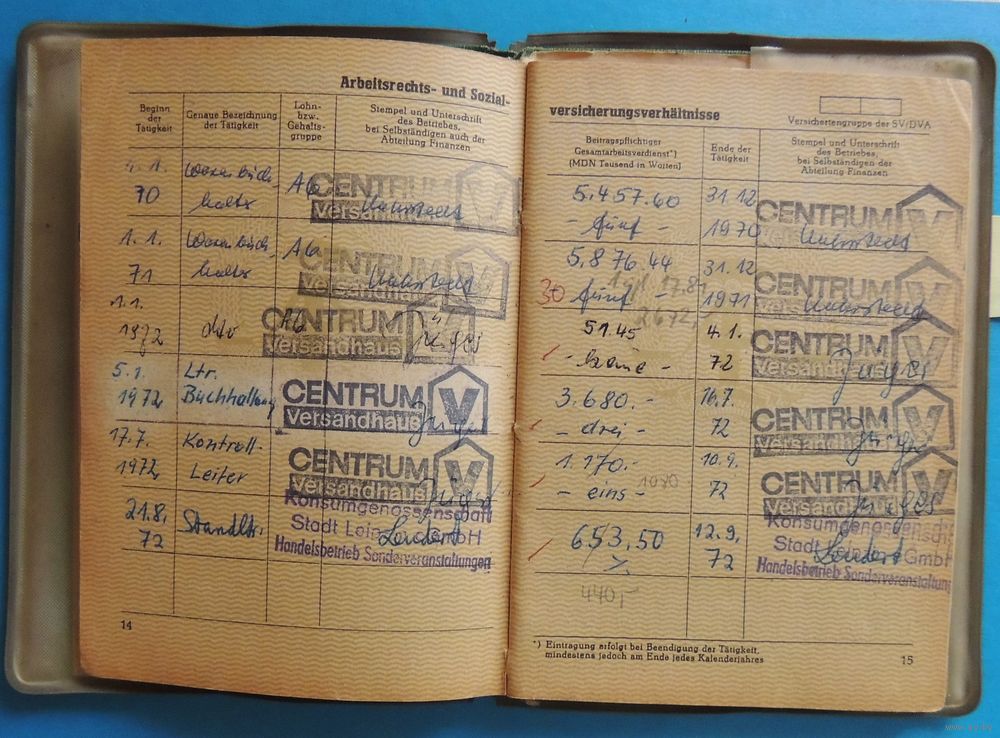 Arbeitsrechts- und Sozial-
Beginn
der
Tätigkeit
Genaue Bezeichnung
der Tätigkeit
Lohn-
bzw.
Gehalts-
gruppe
Stempel und Unterschrift
des Betriebes,
bei Selbständigen auch der
Abteilung Finanzen
1.1.
70
A6
CENTRUM
Versandhaus
1.1.
71
A6
CENTRUM
Versandhaus
1.1.
1972
dto
A6
CENTRUM
Versandhaus
5.1.
1972
Ltr.
Buchhaltung
CENTRUM
Versandhaus
17.7.
1972
Kontroll-
Leiter
CENTRUM
Versandhaus
21.8.
72
Standltr.
Konsumgenossenschaft
Stadt Leipzig GmbH
Handelsbetrieb Sonderveranstaltungen
14
versicherungsverhältnisse
Versichertengruppe der SV/DVA
Beitragspflichtiger
Gesamtarbeitsverdienst*)
(MDN Tausend in Worten)
Ende der
Tätigkeit
Stempel und Unterschrift
des Betriebes,
bei Selbständigen der
Abteilung Finanzen
5.457.60
- fünf -
31.12
1970
CENTRUM
Versandhaus
5.876.44
30 fünf -
31.12
1971
CENTRUM
51.45
- keine -
4.1.
72
CENTRUM
Versandhaus
3.680.-
- drei -
16.7.
72
CENTRUM
Versandhaus
1.170.-
- eins -
1080
10.9.
72
CENTRUM
Versandhaus
653.50
12.9.
72
Konsumgenossensch
Stadt GmbH
Handelsbetrieb Sonderveranstaltung
440,-
*) Eintragung erfolgt bei Beendigung der Tätigkeit,
mindestens jedoch am Ende jedes Kalenderjahres
15